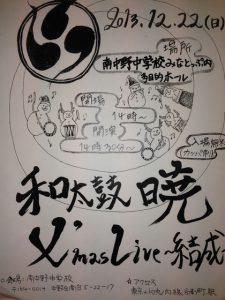 2013.12.22(日)
場所
南中野中学校みなとっぷ内
多目的ホール
開場
14時〜
開演
14時30分〜
入場無料
(カンパ制)
和太鼓 暁
X'mas Live〜結成
○会場:南中野中学校
☆アクセス